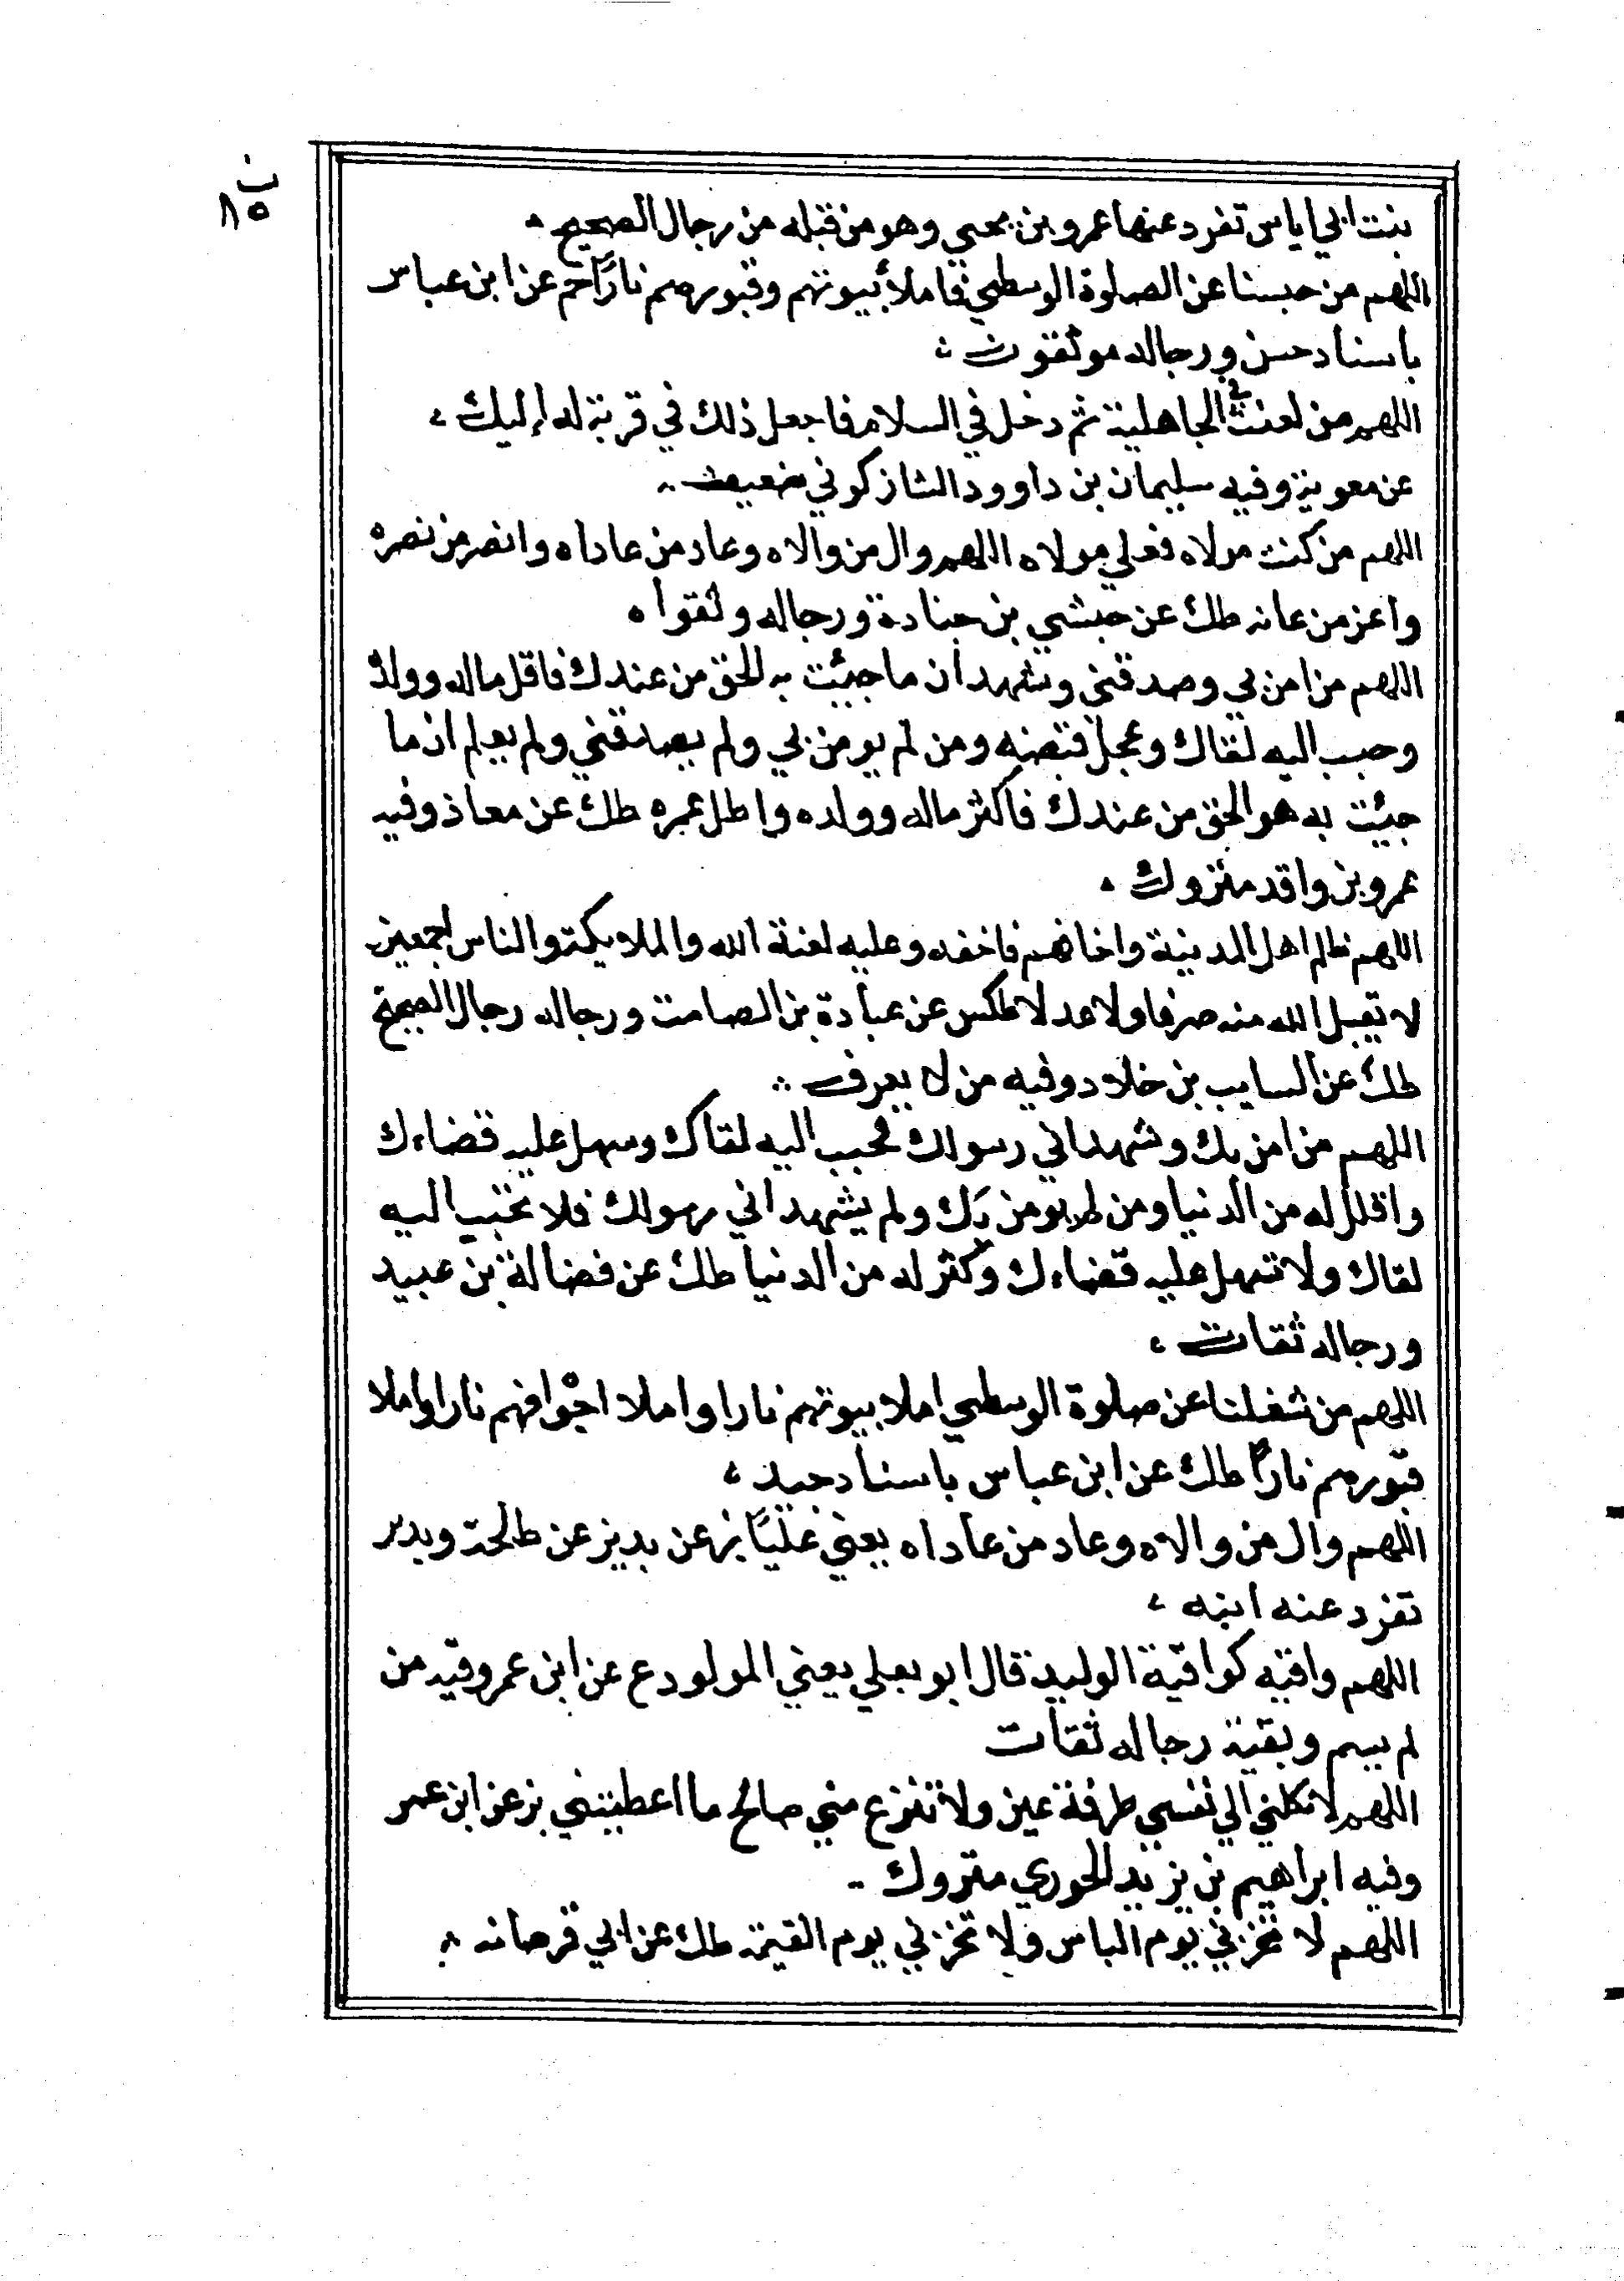 ب
٨٥
بنت ابي اياس تفرد عنها عمرو بن يحيى وهو من قبله من رجال الصحيح
اللهم من حبسنا عن الصلوة الوسطى فاملأ بيوتهم وقبورهم نارًا حم عن ابن عباس
باسناد حسن ورجاله موثقون
اللهم من لعنت في الجاهلية ثم دخل في السلام فاجعل ذلك في قربة له إليك
عن معوية وفيه سليمان بن داوود الشاذكوني ضعيف
اللهم من كنت مولاه فعلي مولاه اللهم وال من والاه وعاد من عاداه وانصر من نصره
واعز من عانه طك عن حبشي بن جنادة ورجاله وثقوا
اللهم من امن بي وصدقني وشهد ان ما جئت به الحق من عندك فاقل ماله وولده
وحبب اليه لقاك وعجل قبضه ومن لم يومن بي ولم يصدقني ولم يعلم ان ما
جئت به هو الحق من عندك فاكثر ماله وولده واطل عمره طك عن معاذ وفيه
عمرو بن واقد متروك
اللهم ظلم اهل المدينة واخافهم فاخفه وعليه لعنة الله والملايكة والناس اجمعين
لا تقبل الله منه صرفا ولا عدلا طكس عن عبادة بن الصامت ورجاله رجال الصحيح
طك عن السايب بن خلاد وفيه من لا يعرف
اللهم من امن بك وشهد اني رسولك فحبب اليه لقاك وسهل عليه قضاءك
واقلل له من الدنيا ومن لم يومن بك ولم يشهد اني رسولك فلا تحبب اليه
لقاك ولا تسهل عليه قضاءك وكثر له من الدنيا طك عن فضالة بن عبيد
ورجاله ثقات
اللهم من شغلنا عن صلوة الوسطى املا بيوتهم نارا واملا اجوافهم نارا واملا
قبورهم نارًا طك عن ابن عباس باسناد جيد
اللهم وال من والاه وعاد من عاداه يعني عليًا بز عن بدير عن طلحة وبدير
تفرد عنه ابنه
اللهم واقيه كواقية الوليد قال ابو يعلي يعني المولود ع عن ابن عمر وفيه من
لم يسم وبقية رجاله ثقات
اللهم لا تكلني الي نفسي طرفة عين ولا تنزع مني صالح ما اعطيتني بز عن ابن عمر
وفيه ابراهيم بن يزيد الخوري متروك
اللهم لا تخزني يوم الباس ولا تخزني يوم القيمة طك عن ابي قرصانه